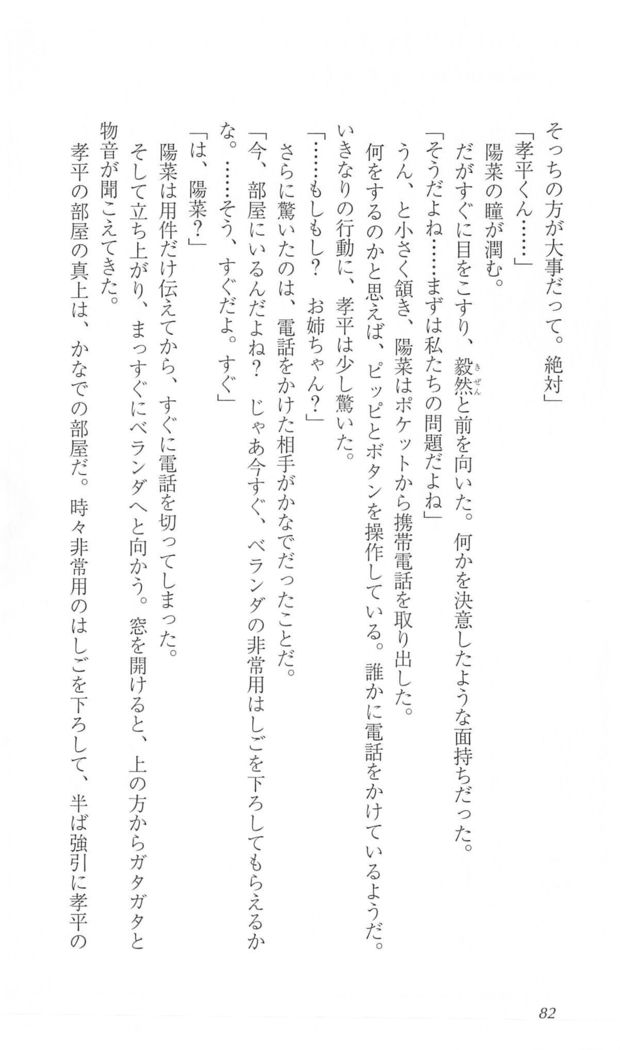 そっちの方が大事だって。絶対」
「孝平くん……」
陽菜の瞳が潤む。
だがすぐに目をこすり、毅然と前を向いた。何かを決意したような面持ちだった。
きぜん
「そうだよね……まずは私たちの問題だよね」
うん、と小さく頷き、陽菜はポケットから携帯電話を取り出した。
何をするのかと思えば、ピッピとボタンを操作している。誰かに電話をかけているようだ。
いきなりの行動に、孝平は少し驚いた。
「……もしもし？　お姉ちゃん？」
さらに驚いたのは、電話をかけた相手がかなでだったことだ。
「今、部屋にいるんだよね？　じゃあ今すぐ、ベランダの非常用はしごを下ろしてもらえるか
な。……そう、すぐだよ。すぐ」
「は、陽菜？」
陽菜は用件だけ伝えてから、すぐに電話を切ってしまった。
そして立ち上がり、まっすぐにベランダへと向かう。窓を開けると、上の方からガタガタと
物音が聞こえてきた。
孝平の部屋の真上は、かなでの部屋だ。時々非常用のはしごを下ろして、半ば強引に孝平の
82